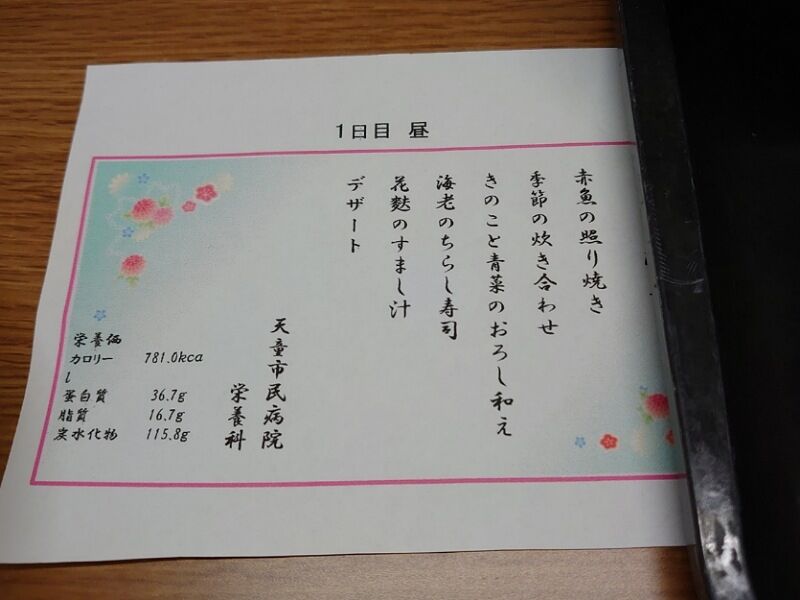 1日目 昼
赤魚の照り焼き
季節の炊き合わせ
きのこと青菜のおろし和え
海老のちらし寿司
花麩のすまし汁
デザート
天童市民病院
栄養科
栄養価
カロリー 781.0kca
l
蛋白質 36.7g
脂質 16.7g
炭水化物 115.8g